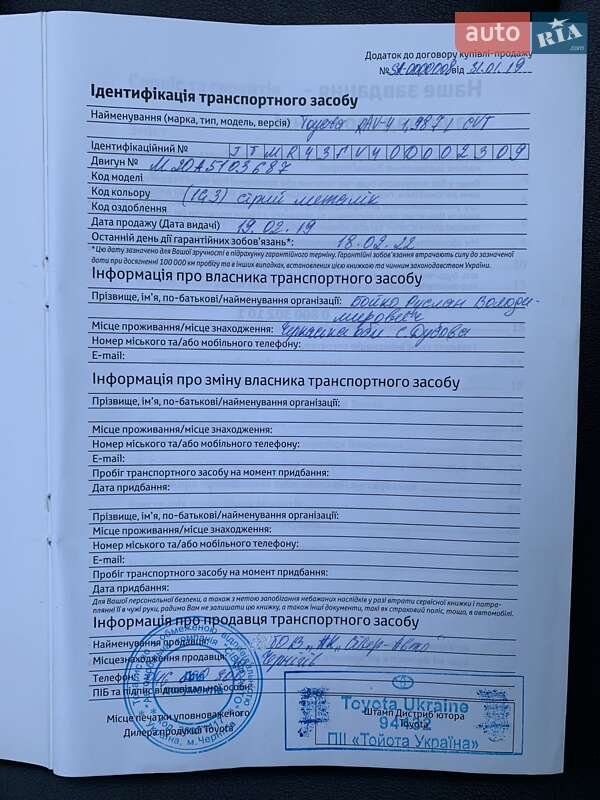 auto RIA .com
Додаток до договору купівлі-продажу
№ від 31.01.19
Ідентифікація транспортного засобу
Найменування (марка, тип, модель, версія) Toyota RAV-4 1,987 l CVT
Ідентифікаційний № JTMR43FV400002309
Двигун № M20A5103687
Код моделі
Код кольору (1G3) сірий металік
Код оздоблення
Дата продажу (Дата видачі) 19.02.19
Останній день дії гарантійних зобов'язань*: 18.02.22
* Цю дату зазначено для Вашої зручності в підрахунку гарантійного терміну. Гарантійні зобов'язання втрачають силу до зазначеної
дати при досягненні 100 000 км пробігу та в інших випадках, встановлених цією книжкою та чинним законодавством України.
Інформація про власника транспортного засобу
Прізвище, ім'я, по-батькові/найменування організації: Бойко Руслан Володи-
мирович
Місце проживання/місце знаходження: Черкаська обл с.
Номер міського та/або мобільного телефону:
E-mail:
Інформація про зміну власника транспортного засобу
Прізвище, ім'я, по-батькові/найменування організації:
Місце проживання/місце знаходження:
Номер міського та/або мобільного телефону:
E-mail:
Пробіг транспортного засобу на момент придбання:
Дата придбання:
Прізвище, ім'я, по-батькові/найменування організації:
Місце проживання/місце знаходження:
Номер міського та/або мобільного телефону:
E-mail:
Пробіг транспортного засобу на момент придбання:
Дата придбання:
Для Вашої персональної безпеки, а також з метою запобігання небажаних наслідків у разі втрати сервісної книжки і потра-
плянні її в чужі руки, радимо Вам не залишати цю книжку, а також інші документи, такі як страховий поліс, тощо, в автомобілі.
Інформація про продавця транспортного засобу
Найменування продавця: ТОВ
Місцезнаходження продавця: Чернігів
Телефон:
ПІБ та підпис відповідальної особи
Місце печатки уповноваженого
Дилера продукції Toyota
Штамп Дистриб'ютора
Toyota
Toyota Ukraine
ПІІ «Тойота Україна»